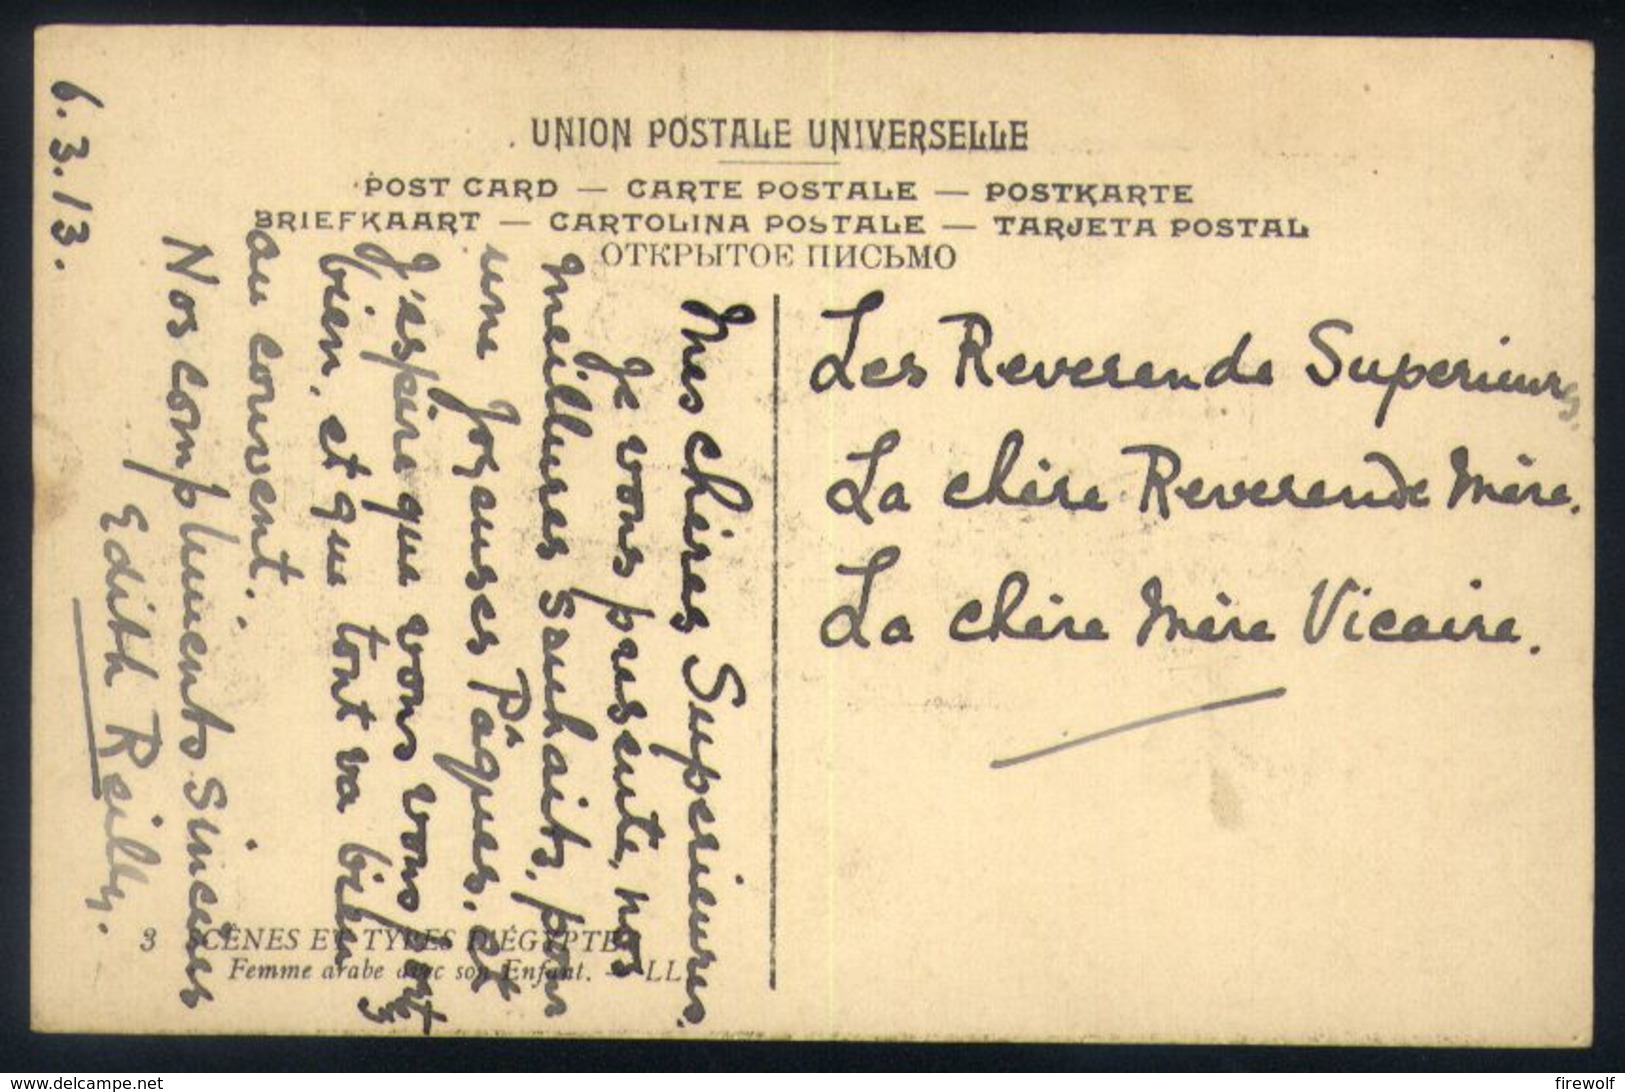 UNION POSTALE UNIVERSELLE
POST CARD — CARTE POSTALE — POSTKARTE
BRIEFKAART — CARTOLINA POSTALE — TARJETA POSTAL
ОТКРЫТОЕ ПИСЬМО
6.3.13.
Mes chères Superieures.
Je vous presente, nos
meillures sauhaits, pour
une Joyeuses Pâques, et
J'espère que vous vous
bien, et que tout va bien
au couvent.
Nos compliments Sinceres
Edith Reilly.
Les Reverende Superieures
La chère Reverende Mère.
La chère Mère Vicaire.
3 SCÈNES ET TYPES D'ÉGYPTE
Femme arabe avec son Enfant. — LL
delcampe.net
firewolf